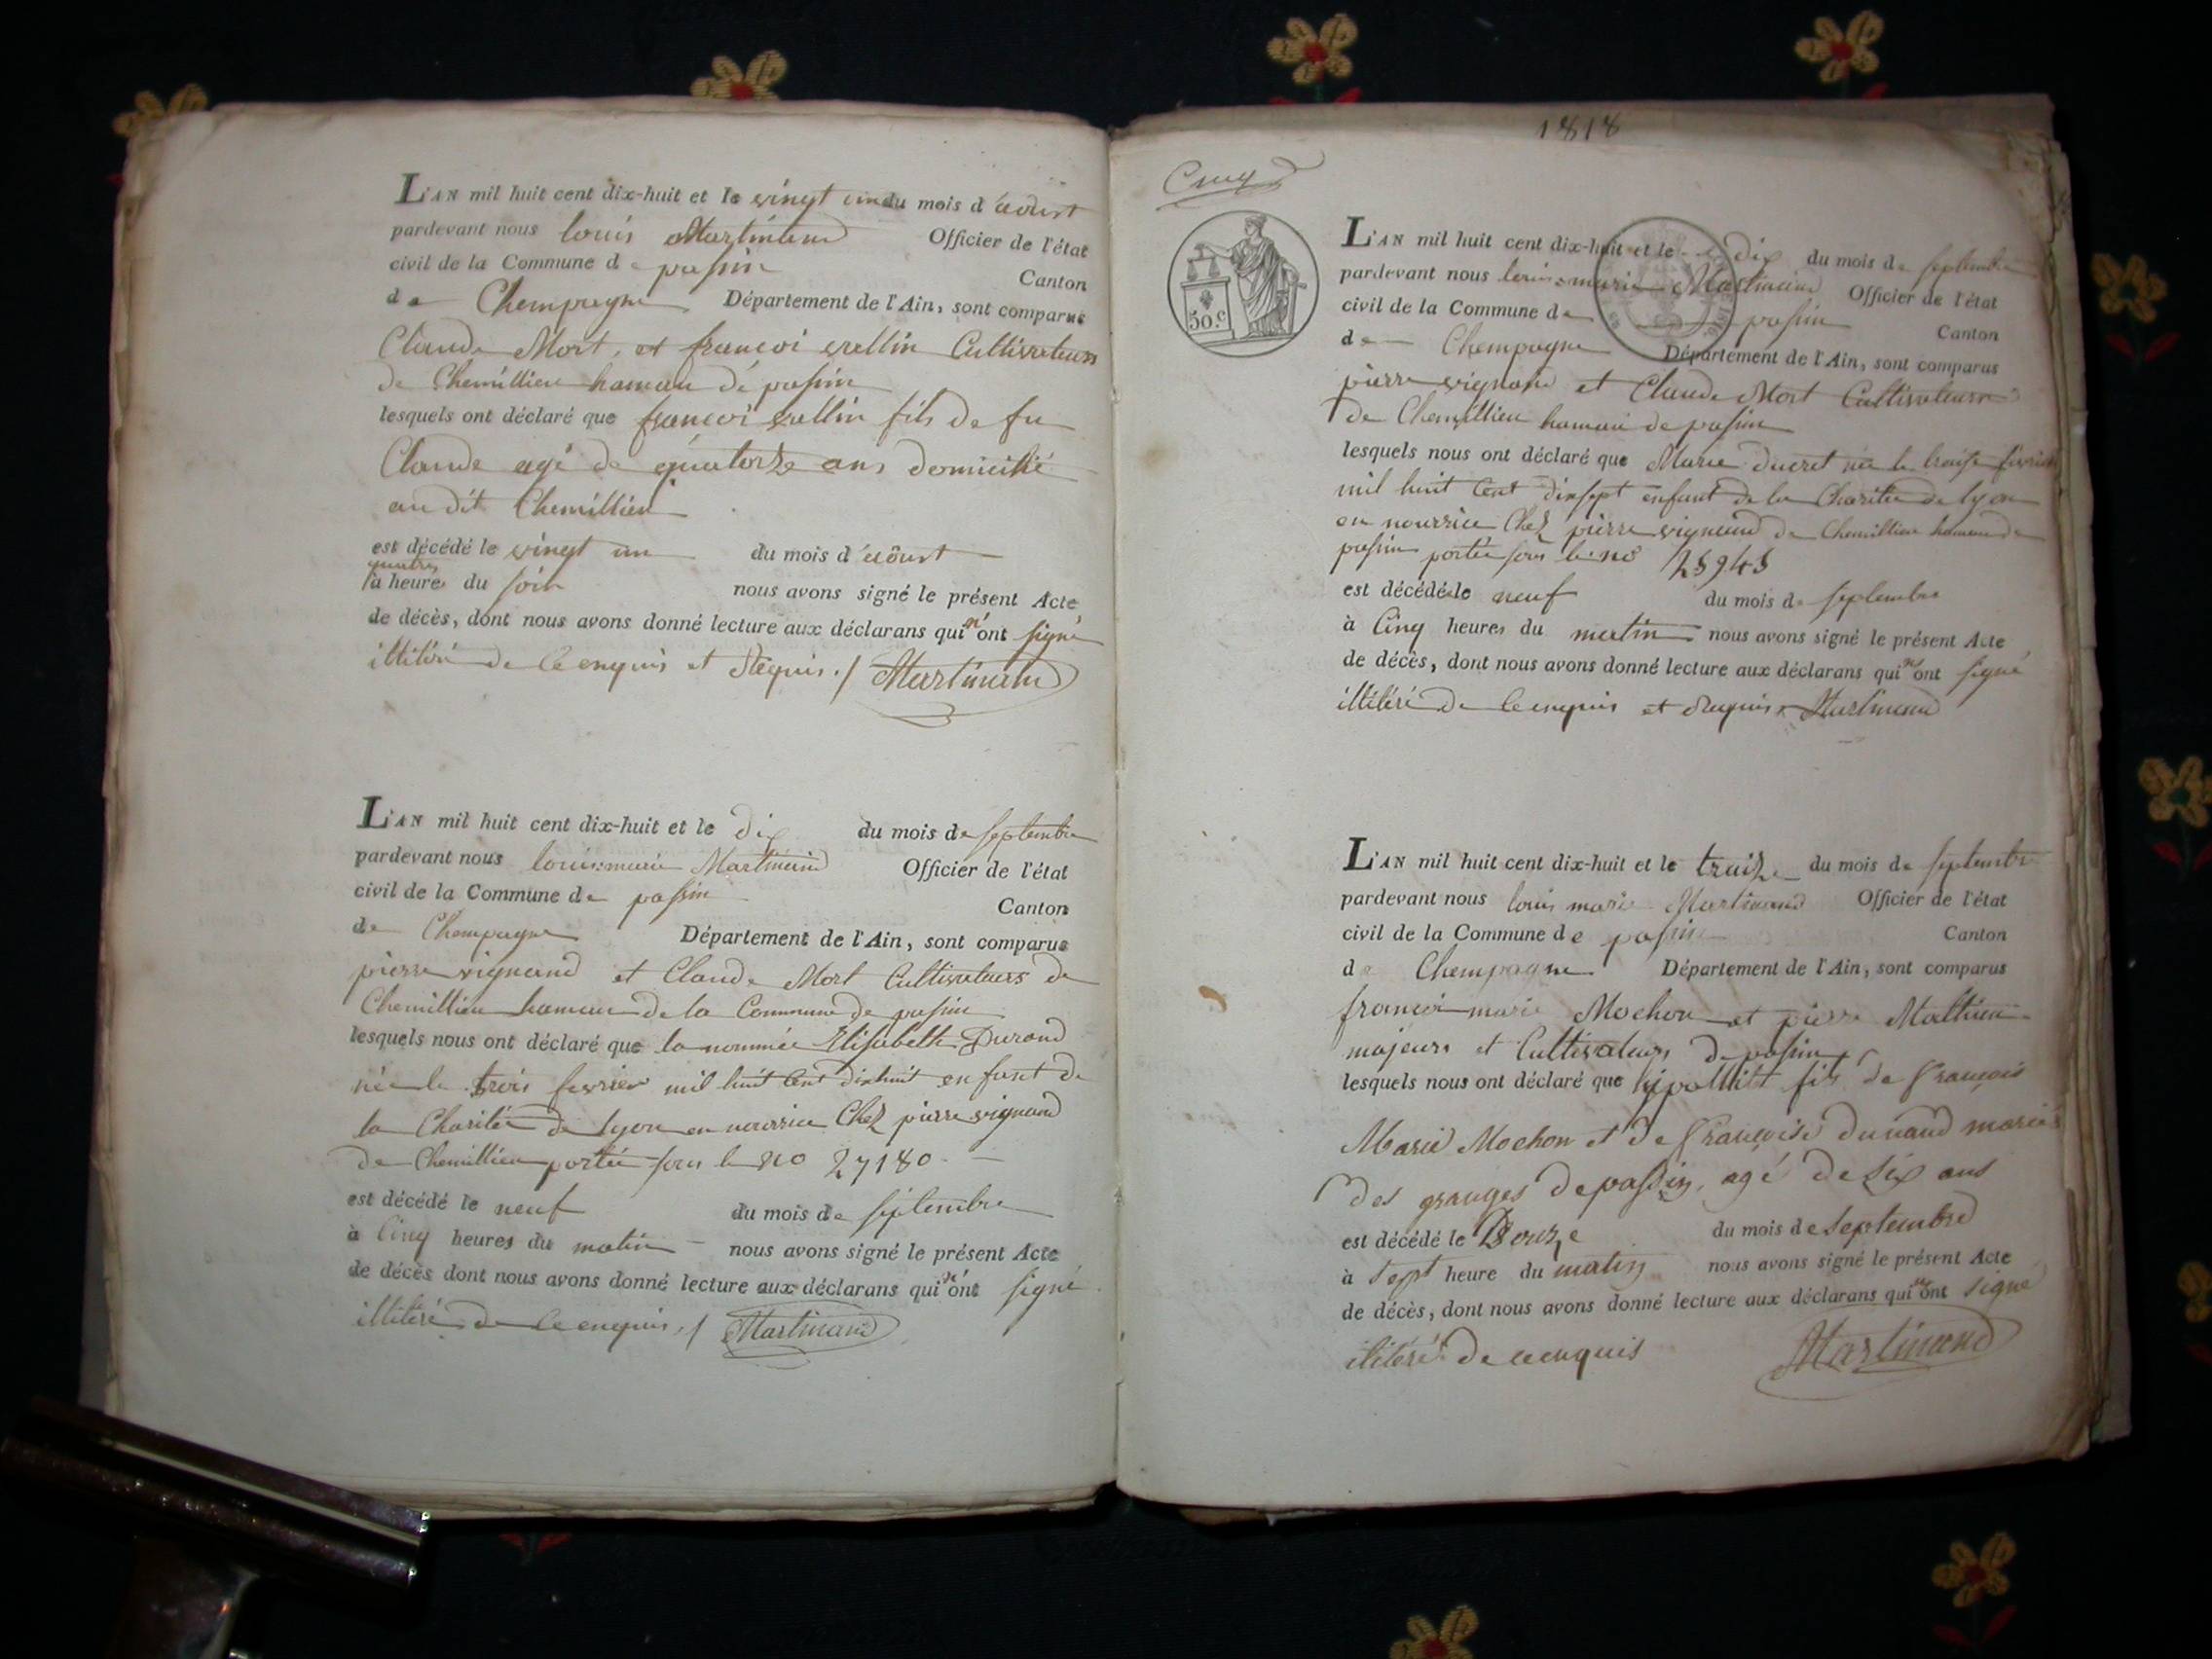 L'AN mil huit cent dix-huit et le vingt un du mois d'aôust
pardevant nous louis Martinand Officier de l'état
civil de la Commune de passin
Canton
de Chempagne Département de l'Ain, sont comparus
Claude Mort, et françoi vellin Cultivateurs
de Chemillieu hameau de passin
lesquels ont déclaré que françoi vellin fils de fu
Claude agé de quatorze ans domicilié
au dit Chemillieu
est décédé le vingt un du mois d'aôust
quatres
à heures du soir nous avons signé le présent Acte
de décès, dont nous avons donné lecture aux déclarans qui n'ont signé
illitéré de ce enquis et Requis ./ Martinand
L'AN mil huit cent dix-huit et le dix du mois de septembre
pardevant nous louis marie Martinand Officier de l'état
civil de la Commune de passin
Canton
de Chempagne Département de l'Ain, sont comparus
pierre vignand et Claude Mort Cultivateurs de
Chemillieu hameau de la Commune de passin
lesquels nous ont déclaré que la nommée Elisabeth Durand
née le trois fevrier mil huit Cent dixhuit enfant de
la Charitée de lyon en nourrice Chez pierre vignand
de Chemillieu portée sous le no 27180
est décédé le neuf du mois de séptembre
à Cinq heures du matin nous avons signé le présent Acte
de décès dont nous avons donné lecture aux déclarans qui n'ont signé
illitéré de ce enquis ./ Martinand
1818
Cinq
50.c
L'AN mil huit cent dix-huit et le dix du mois de septembre
pardevant nous louis marie Martinand Officier de l'état
civil de la Commune de passin
Canton
de Chempagne Département de l'Ain, sont comparus
pierre vignand et Claude Mort Cultivateurs
de Chemillieu hameau de passin
lesquels nous ont déclaré que Marie ducret née le traise fevrier
mil huit Cent dixsept enfant de la Charitée de lyon
en nourrice Chez pierre vignand de Chemillieu hameau de
passin portée sous le no
est décédé le neuf du mois de septembre
à Cinq heures du matin nous avons signé le présent Acte
de décès, dont nous avons donné lecture aux déclarans qui n'ont signé
illitéré de ce enquis et Requis Martinand
L'AN mil huit cent dix-huit et le traize du mois de septembre
pardevant nous louis marie Martinand Officier de l'état
civil de la Commune de passin
Canton
de Chempagne Département de l'Ain, sont comparus
françoi marie Mochon et pierre Mathieu
majeurs et Cultivateurs de passin
lesquels nous ont déclaré que hipollitt fils de françois
Marie Mochon et de françoise dunand mariés
des granges de passin, agé de six ans
est décédé le Douze du mois de septembre
à sept heure du matin nous avons signé le présent Acte
de décès, dont nous avons donné lecture aux déclarans qui n'ont signé
ilitéré de ce enquis Martinand